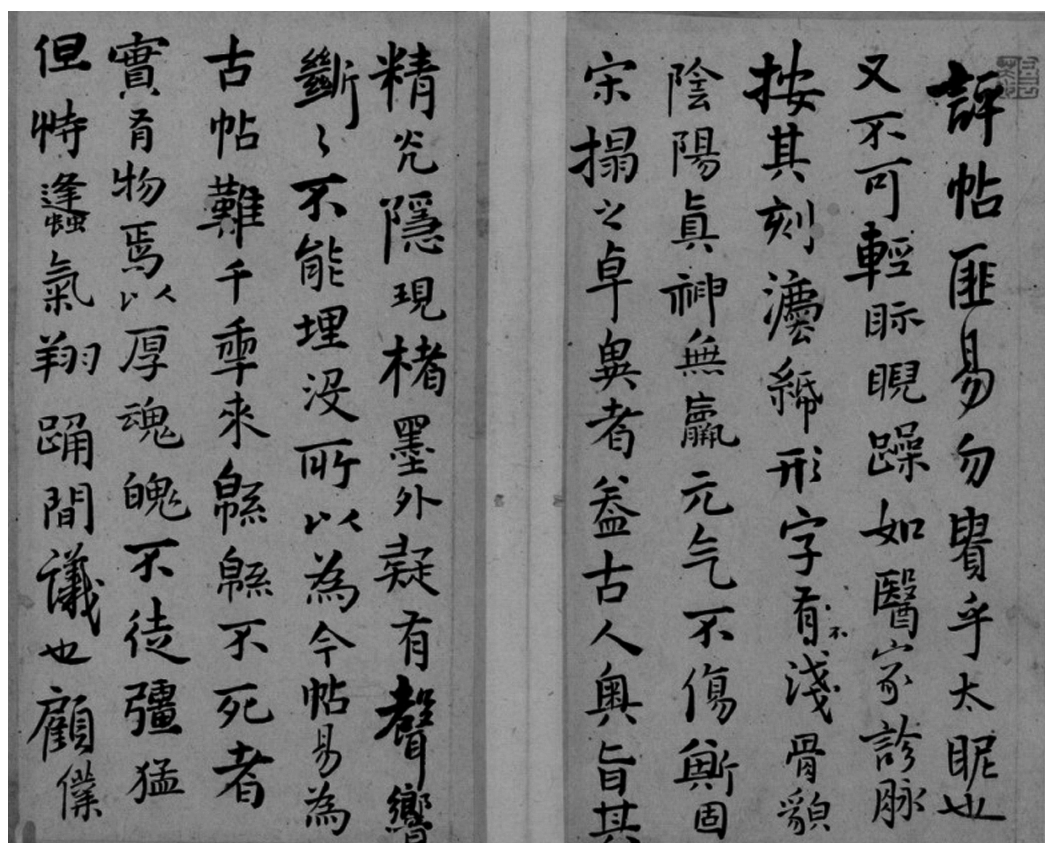 評帖匪易勿貴乎太眤也
又不可輕眎睨躁如醫家診脉
按其刻灋絺形字有不淺骨貌
陰陽真神無羸元气不傷斯固
宋搨之卓異者葢古人奥旨其
精光隱現楮墨外疑有聲響
斷〻不能埋没所以為今帖易為
古帖難千秊來緜緜不死者
實有物焉以厚魂魄不徒彊猛
但恃蠭氣翔踊間議也顧僕